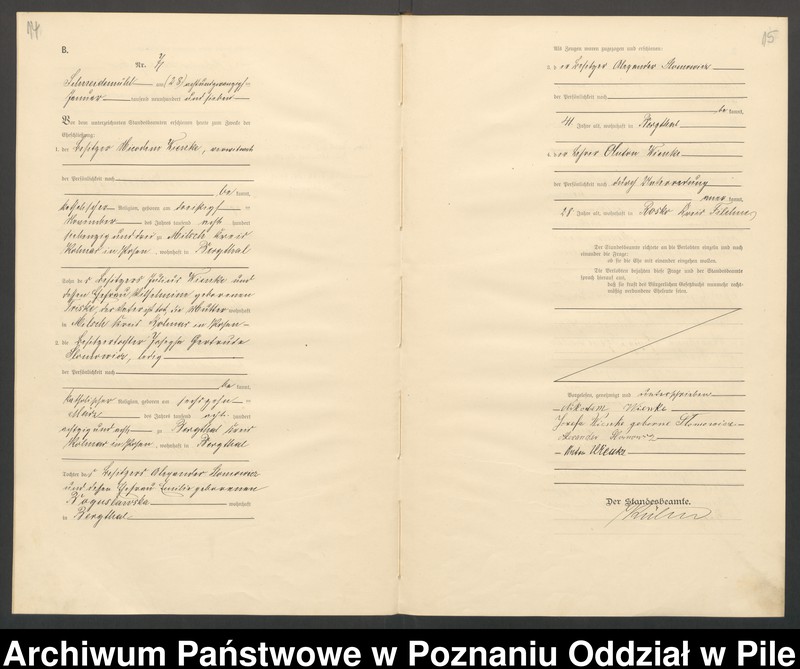 14
B.
Nr. 4
Schneidemühl am (28) achtundzwanzig=
Januar tausend neunhundert und sieben
Vor dem unterzeichneten Standesbeamten erschienen heute zum Zwecke der
Eheschließung:
1. der Besitzer Nicodem Wienke, verwitwet
der Persönlichkeit nach
be kannt,
katholischer Religion, geboren am dreißig=
November des Jahres tausend acht hundert
siebenzig und drei zu Milsch Kreis
Kolmar in Posen, wohnhaft in Bergthal
Sohn des Besitzers Julius Wienke und
dessen Ehefrau Wilhelmine geborenen
Friske, der Vater ist tot, die Mutter wohnhaft
in Milsch Kreis Kolmar in Posen
2. die Besitzertochter Josepha Gertrude
Slomowicz, ledig
der Persönlichkeit nach
be kannt,
katholischer Religion, geboren am sechszehn=
März des Jahres tausend acht hundert
achtzig und acht zu Bergthal Kreis
Kolmar in Posen, wohnhaft in Bergthal
Tochter des Besitzers Alexander Slomowicz
und dessen Ehefrau Emilie geborenen
Boguslawska wohnhaft
in Bergthal
15
Als Zeugen waren zugezogen und erschienen:
3. der Besitzer Alexander Slomowicz
der Persönlichkeit nach
be kannt,
41 Jahre alt, wohnhaft in Bergthal
4. der Anton Wienke
der Persönlichkeit nach durch Unterredung
kannt,
28 Jahre alt, wohnhaft in Rosko Kreis Filehne
Der Standesbeamte richtete an die Verlobten einzeln und nach
einander die Frage:
ob sie die Ehe mit einander eingehen wollen.
Die Verlobten bejahten diese Frage und der Standesbeamte
sprach hierauf aus,
daß sie kraft des Bürgerlichen Gesetzbuchs nunmehr recht-
mäßig verbundene Eheleute seien.
Vorgelesen, genehmigt und unterschrieben
Nikodem Wienke
Josefa Wienke geborene Slomowicz
Alexander Slomowicz
Anton Wienke
Der Standesbeamte.
Archiwum Państwowe w Poznaniu Oddział w Pile